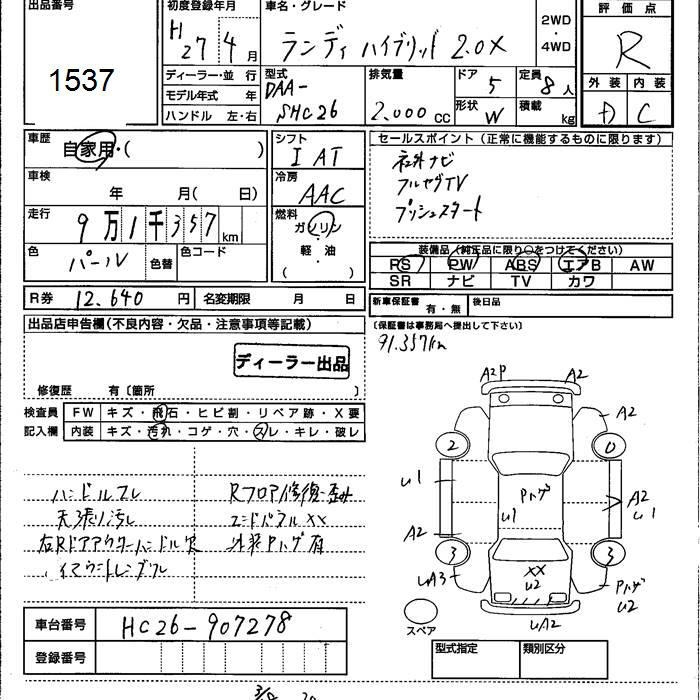 出品番号
1537
初度登録年月
H 27 4 月
車名・グレード
ランディ ハイブリッド 2.0X
2WD
・
4WD
評価点
R
ディーラー・並行
モデル年式 年
ハンドル 左・右
型式
DAA-
SHC26
排気量
2.000 cc
ドア 5
形状 W
定員 8 人
積載 kg
外装 内装
D C
車歴
自家用・( )
車検
年 月( 日)
走行
9万1千357 km
色
パール 色替
色コード
シフト
I AT
冷房
AAC
燃料
ガソリン
・
軽・油
( )
セールスポイント(正常に機能するものに限ります)
社外ナビ
フルセグTV
プッシュスタート
装備品(純正品に限り○をつけてください)
RS PW ABS エアB AW
SR ナビ TV カワ
R券 12.640 円 名変期限 月 日
新車保証書 有・無 後日品
(保証書は事務局へ提出して下さい)
91.357km
出品店申告欄(不良内容・欠品・注意事項等記載)
ディーラー出品
修復歴 有〔箇所 〕
検査員 FW キズ・飛石・ヒビ割・リペア跡・X要
記入欄 内装 キズ・汚れ・コゲ・穴・スレ・キレ・破レ
ハンドルスレ
天張り汚れ
右Rドアアウターハンドル欠
Rフロア修復歪み
エンドパネルXX
外装Pハゲ有
A2P A2
A2
2 0
U1 U1 Pハゲ A2
U1
A2
3 3
UA3 XX
U2 Pハゲ
U2
UA2
スペア
車台番号 HC26-907278
登録番号
型式指定 類別区分